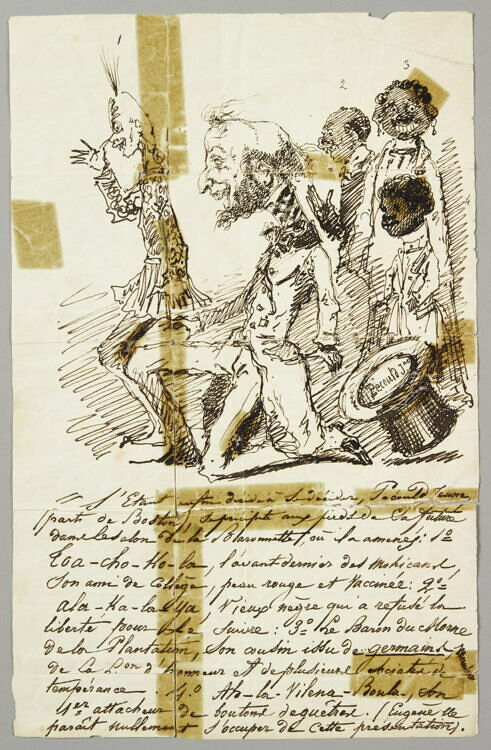 1
2
3
Pecould J.
S'Etant enfin décidé à se décider, Pecould Jeune
(parti de Boston) se précipite aux pieds de Sa future
dans le salon de la Baronnette, où l'a amenés: 1º
Toa-cho-Ko-la, l'avant dernier des Mohicans,
Son ami de Collège, peau rouge et vacciné: 2º
ala-Ka-la-Ya, Vieux nègre qui a refusé la
liberté pour le Suivre: 3º Le Baron du Morne
de la Plantation, son cousin issu de germains
de la L.on d'honneur et de plusieurs Sociétés de
tempérance. 4º Ah-la-Vilena-Boula, Son
1er attacheur de boutons de guêtres. (Eugène Me
paraît nullement s'occuper de cette présentation).